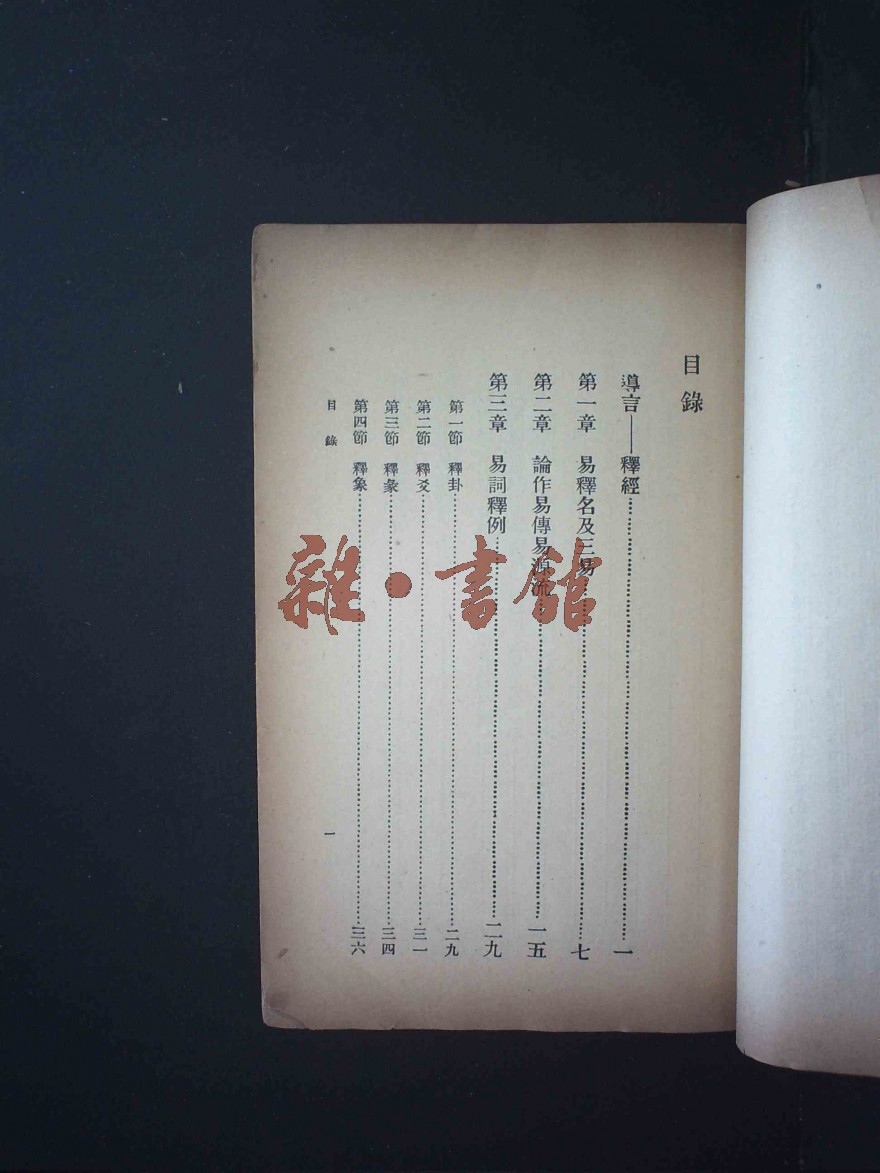 目錄
導言——釋經……一
第一章 易釋名及三易……七
第二章 論作易傳易源流……一五
第三章 易詞釋例……二九
第一節 釋卦……二九
第二節 釋爻……三一
第三節 釋彖……三四
第四節 釋象……三六
目錄 一
雜·書館